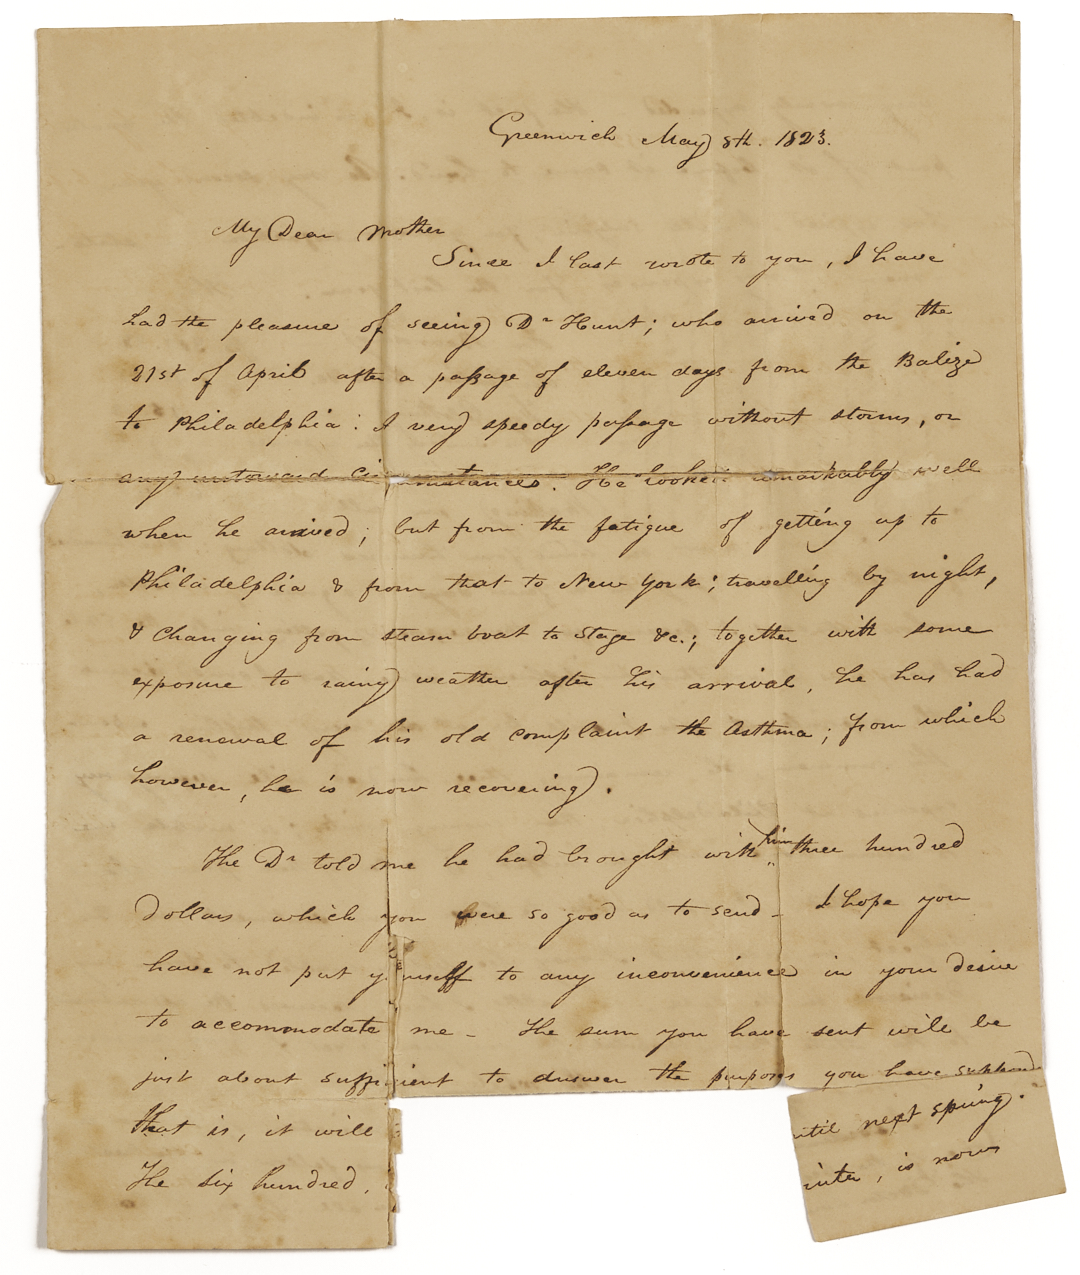 Greenwich May 8th. 1823.
My Dear Mother
Since I last wrote to you, I have
had the pleasure of seeing Dr Hunt; who arrived on the
21st of April after a passage of eleven days from the Balize
to Philadelphia: A very speedy passage without storms, or
any untoward circumstances. He looked remarkably well
when he arrived; but from the fatigue of getting up to
Philadelphia & from that to New York; travelling by night,
& changing from steam boat to stage &c.; together with some
exposure to rainy weather after his arrival, he has had
a renewal of his old complaint the Asthma; from which
however, he is now recovering.
The Dr told me he had brought with him three hundred
Dollars, which you were so good as to send - I hope you
have not put yourself to any inconvenience in your desire
to accommodate me - The sum you have sent will be
just about sufficient to answer the purposes you have
that is, it will until next spring.
The six hundred, winter, is now